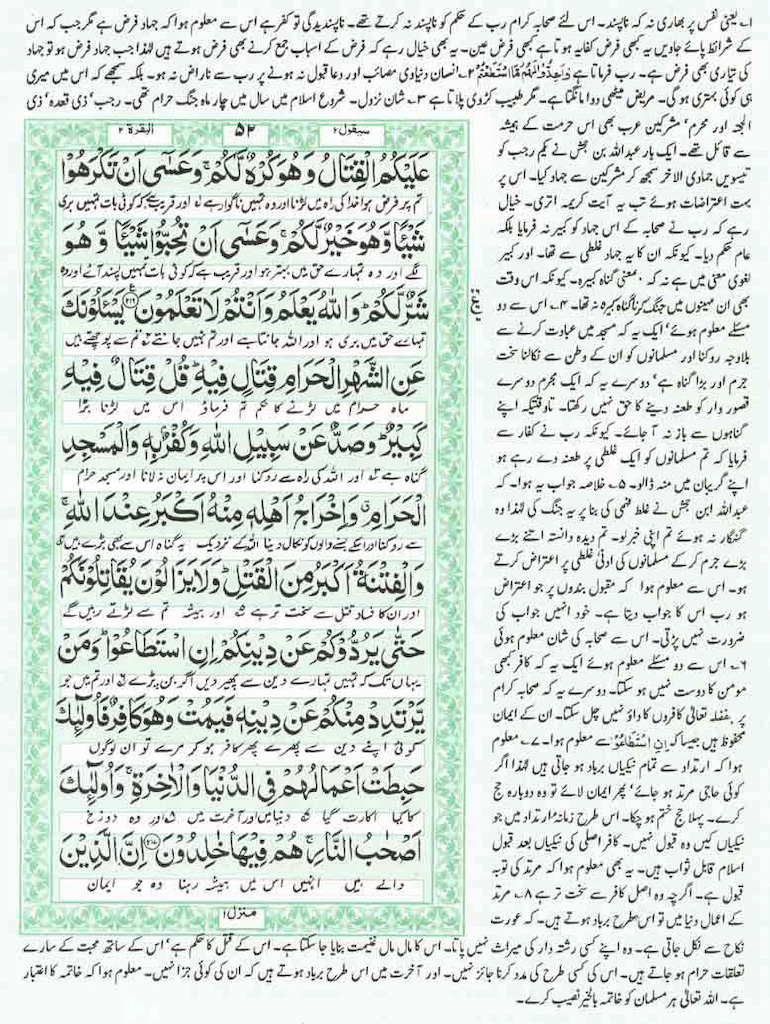 ۱۔ یعنی نفس پر بھاری نہ کہ ناپسند۔ اس لئے صحابہ کرام رب کے حکم کو ناپسند نہ کرتے تھے۔ ناپسندیدگی تو کفر ہے اس سے معلوم ہوا کہ جہاد فرض ہے مگر جب کہ اس
کے شرائط پائے جاویں یہ کبھی فرض کفایہ ہوتا ہے کبھی فرض عین۔ یہ بھی خیال رہے کہ فرض کے اسباب جمع کرنے بھی فرض ہوتے ہیں لہٰذا جب جہاد فرض ہو تو جہاد
کی تیاری بھی فرض ہے۔ رب فرماتا ہے وَاَعِدُّوْا لَهُمْ مَّا اسْتَطَعْتُمْ ۲۔ انسان دنیاوی مصائب اور دعا قبول نہ ہونے پر رب سے ناراض نہ ہو۔ بلکہ سمجھے کہ اس میں میری
ہی کوئی بہتری ہو گی۔ مریض میٹھی دوا مانگتا ہے۔ مگر طبیب کڑوی پلاتا ہے ۳۔ شان نزول۔ شروع اسلام میں سال میں چار ماہ جنگ حرام تھی۔ رجب' ذی قعدہ' ذی
الحجہ اور محرم' مشرکین عرب بھی اس حرمت کے ہمیشہ
سے قائل تھے۔ ایک بار عبداللہ بن جحش نے یکم رجب کو
تیسویں جمادی الاخر سمجھ کر مشرکین سے جہاد کیا۔ اس پر
بہت اعتراضات ہوئے تب یہ آیت کریمہ اتری۔ خیال
رہے کہ رب نے صحابہ کے اس جہاد کو کبیر نہ فرمایا بلکہ
عام حکم دیا۔ کیونکہ ان کا یہ جہاد غلطی سے تھا۔ اور کبیر
لغوی معنی میں ہے نہ کہ بمعنی گناہ کبیرہ۔ کیونکہ اس وقت
بھی ان مہینوں میں جنگ کرنا گناہ کبیرہ نہ تھا۔ ۴۔ اس سے دو
مسئلے معلوم ہوئے' ایک یہ کہ مسجد میں عبادت کرنے سے
بلاوجہ روکنا اور مسلمانوں کو ان کے وطن سے نکالنا سخت
جرم اور بڑا گناہ ہے' دوسرے یہ کہ ایک مجرم دوسرے
قصور وار کو طعنہ دینے کا حق نہیں رکھتا۔ تاوقتیکہ اپنے
گناہوں سے باز نہ آ جائے۔ کیونکہ رب نے کفار سے
فرمایا کہ تم مسلمانوں کو ایک غلطی پر طعنہ دے رہے ہو
اپنے گریبان میں منہ ڈالو۔ ۵۔ خلاصہ جواب یہ ہوا۔ کہ
عبداللہ ابن جحش نے غلط فہمی کی بنا پر یہ جنگ کی لہٰذا وہ
گنہگار نہ ہوئے تم اپنی خبر لو۔ تم دیدہ دانستہ اتنے بڑے
بڑے جرم کر کے مسلمانوں کی ادنیٰ غلطی پر اعتراض کرتے
ہو۔ اس سے معلوم ہوا کہ مقبول بندوں پر جو اعتراض
ہو رب اس کا جواب دیتا ہے۔ خود انہیں جواب کی
ضرورت نہیں پڑتی۔ اس سے صحابہ کی شان معلوم ہوئی
۶۔ اس سے دو مسئلے معلوم ہوئے ایک یہ کہ کافر کبھی
مومن کا دوست نہیں ہو سکتا۔ دوسرے یہ کہ صحابہ کرام
پر بفضلہ تعالیٰ کافروں کا داؤ نہیں چل سکتا۔ ان کے ایمان
محفوظ ہیں جیسا کہ اِنِ اسْتَطَاعُوْا سے معلوم ہوا۔ ۷۔ معلوم
ہوا کہ ارتداد سے تمام نیکیاں برباد ہو جاتی ہیں لہٰذا اگر
کوئی حاجی مرتد ہو جائے' پھر ایمان لائے تو وہ دوبارہ حج
کرے۔ پہلا حج ختم ہو چکا۔ اس طرح زمانۂ ارتداد میں جو
نیکیاں کیں وہ قبول نہیں۔ کافر اصلی کی نیکیاں بعد قبول
اسلام قابل ثواب ہیں۔ یہ بھی معلوم ہوا کہ مرتد کی توبہ
قبول ہے۔ اگرچہ وہ اصل کافر سے سخت تر ہے ۸۔ مرتد
کے اعمال دنیا میں تو اس طرح برباد ہوتے ہیں۔ کہ عورت
نکاح سے نکل جاتی ہے۔ وہ اپنے کسی رشتہ دار کی میراث نہیں پاتا۔ اس کا مال مال غنیمت بنایا جا سکتا ہے۔ اس کے قتل کا حکم ہے' اس کے ساتھ محبت کے سارے
تعلقات حرام ہو جاتے ہیں۔ اس کی کسی طرح کی مدد کرنا جائز نہیں۔ اور آخرت میں اس طرح برباد ہوتے ہیں کہ ان کی کوئی جزا نہیں۔ معلوم ہوا کہ خاتمہ کا اعتبار
ہے۔ اللہ تعالیٰ ہر مسلمان کو خاتمہ بالخیر نصیب کرے۔
سیقول ۲ ۵۲ البقرۃ ۲
عَلَيْكُمُ الْقِتَالُ وَهُوَ كُرْهٌ لَّكُمْ ۚ وَعَسٰٓى اَنْ تَكْرَهُوْا
تم پر فرض ہوا خدا کی راہ میں لڑنا اور وہ تمہیں ناگوار ہے ۱ اور قریب ہے کہ کوئی بات تمہیں بری
شَيْـًٔا وَّهُوَ خَيْرٌ لَّكُمْ ۚ وَعَسٰٓى اَنْ تُحِبُّوْا شَيْـًٔا وَّهُوَ
لگے اور وہ تمہارے حق میں بہتر ہو اور قریب ہے کہ کوئی بات تمہیں پسند آئے اور وہ
شَرٌّ لَّكُمْ ۗ وَاللّٰهُ يَعْلَمُ وَاَنْتُمْ لَا تَعْلَمُوْنَ ﴿۲۱۶﴾ يَسْـَٔلُوْنَكَ
تمہارے حق میں بری ہو اور اللہ جانتا ہے اور تم نہیں جانتے ۲ تم سے پوچھتے ہیں
عَنِ الشَّهْرِ الْحَرَامِ قِتَالٍ فِيْهِ ۗ قُلْ قِتَالٌ فِيْهِ
ماہ حرام میں لڑنے کا حکم تم فرماؤ اس میں لڑنا بڑا
كَبِيْرٌ ۗ وَصَدٌّ عَنْ سَبِيْلِ اللّٰهِ وَكُفْرٌۢ بِهٖ وَالْمَسْجِدِ
گناہ ہے ۳ اور اللہ کی راہ سے روکنا اور اس پر ایمان نہ لانا اور مسجد حرام
الْحَرَامِ ۤ وَاِخْرَاجُ اَهْلِهٖ مِنْهُ اَكْبَرُ عِنْدَ اللّٰهِ ۚ
سے روکنا اور اسکے بسنے والوں کو نکال دینا اللہ کے نزدیک یہ گناہ اس سے بھی بڑے ہیں ۴
وَالْفِتْنَةُ اَكْبَرُ مِنَ الْقَتْلِ ۗ وَلَا يَزَالُوْنَ يُقَاتِلُوْنَكُمْ
اور ان کا فساد قتل سے سخت تر ہے ۵ اور ہمیشہ تم سے لڑتے رہیں گے
حَتّٰى يَرُدُّوْكُمْ عَنْ دِيْنِكُمْ اِنِ اسْتَطَاعُوْا ۗ وَمَنْ
یہاں تک کہ تمہیں تمہارے دین سے پھیر دیں اگر بن پڑے ۶ اور تم میں جو
يَّرْتَدِدْ مِنْكُمْ عَنْ دِيْنِهٖ فَيَمُتْ وَهُوَ كَافِرٌ فَاُولٰٓئِكَ
کوئی اپنے دین سے پھرے پھر کافر ہو کر مرے تو ان لوگوں
حَبِطَتْ اَعْمَالُهُمْ فِي الدُّنْيَا وَالْاٰخِرَةِ ۚ وَاُولٰٓئِكَ
کا کیا اکارت گیا ۷ دنیا میں اور آخرت میں ۸ اور وہ دوزخ
اَصْحٰبُ النَّارِ ۚ هُمْ فِيْهَا خٰلِدُوْنَ ﴿۲۱۷﴾ اِنَّ الَّذِيْنَ
والے ہیں انہیں اس میں ہمیشہ رہنا وہ جو ایمان
منزل ۱